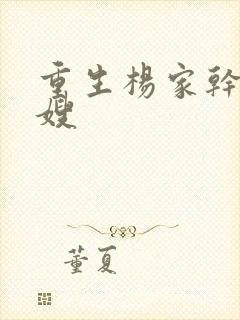 重生楊家幹
嫂
董夏